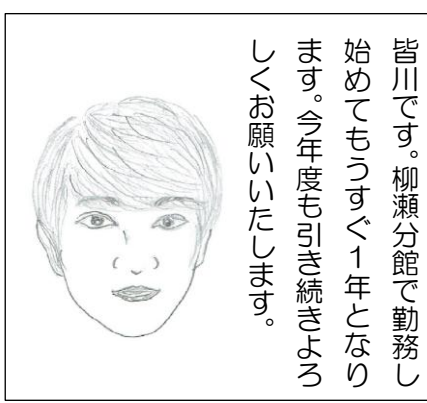 皆川です。柳瀬分館で勤務し
始めてもうすぐ１年となり
ます。今年度も引き続きよろ
しくお願いいたします。